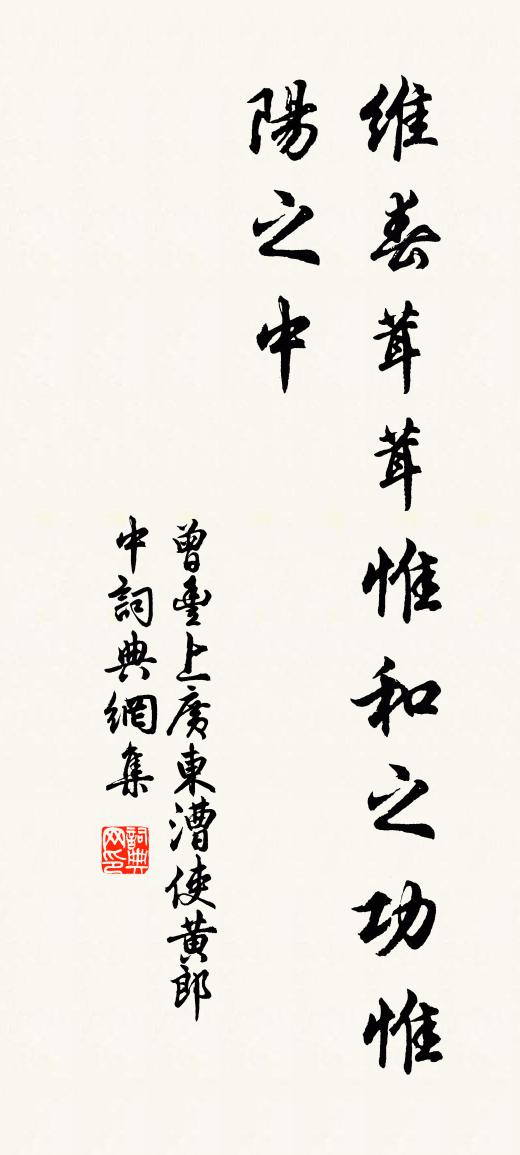 維春茸茸惟和之功惟
陽之中
曾豊上廣東漕使黃郎
中詞典網集
詞典
网印